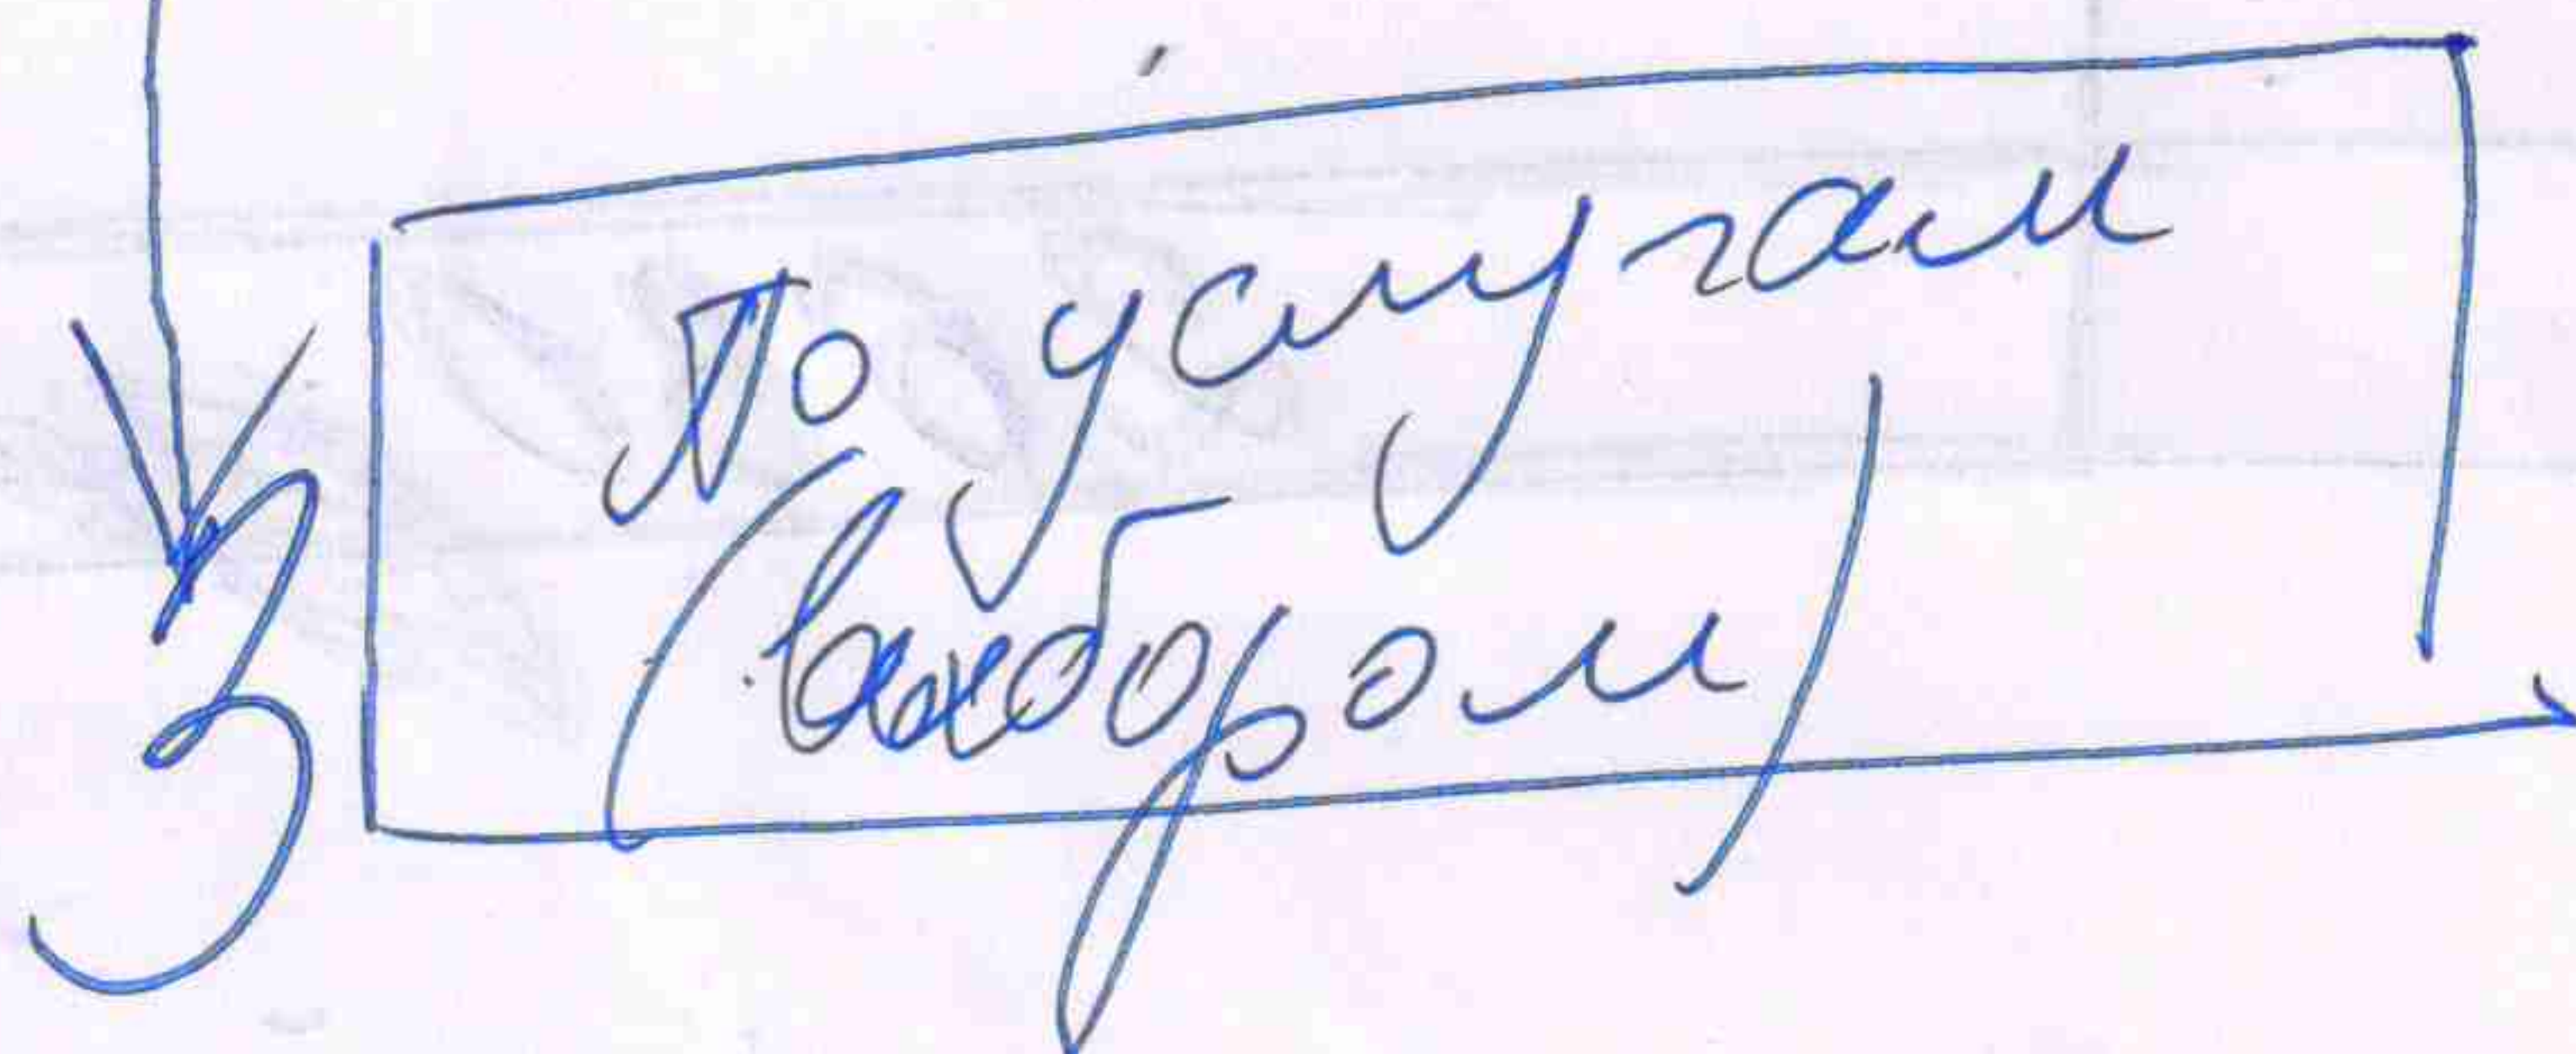 По услугам
3
(выбором)